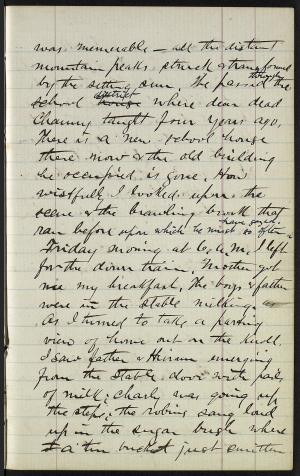 was memorable – all the distant
mountain peaks struck & transformed
by the setting sun. We passed through the
school house district where dear dead
Channy taught four years ago.
There is a new school house
there now & the old building
he occupied is gone. How
wistfully I looked upon the
scene & the brawling brook that
ran before upon which he must have looked so often
Friday moning at 6 a.m. I left
for the down train. Mother got
me my breakfast. The boys & father
were in the stable milking.
As I turned to take a parting
view of home out on the knoll,
I saw father & Hiram emerging
from the stable door with pails
of milk; Charly was going up
the steps; the robins sang loud
up in the sugar bush where
a tin bucket just emitted